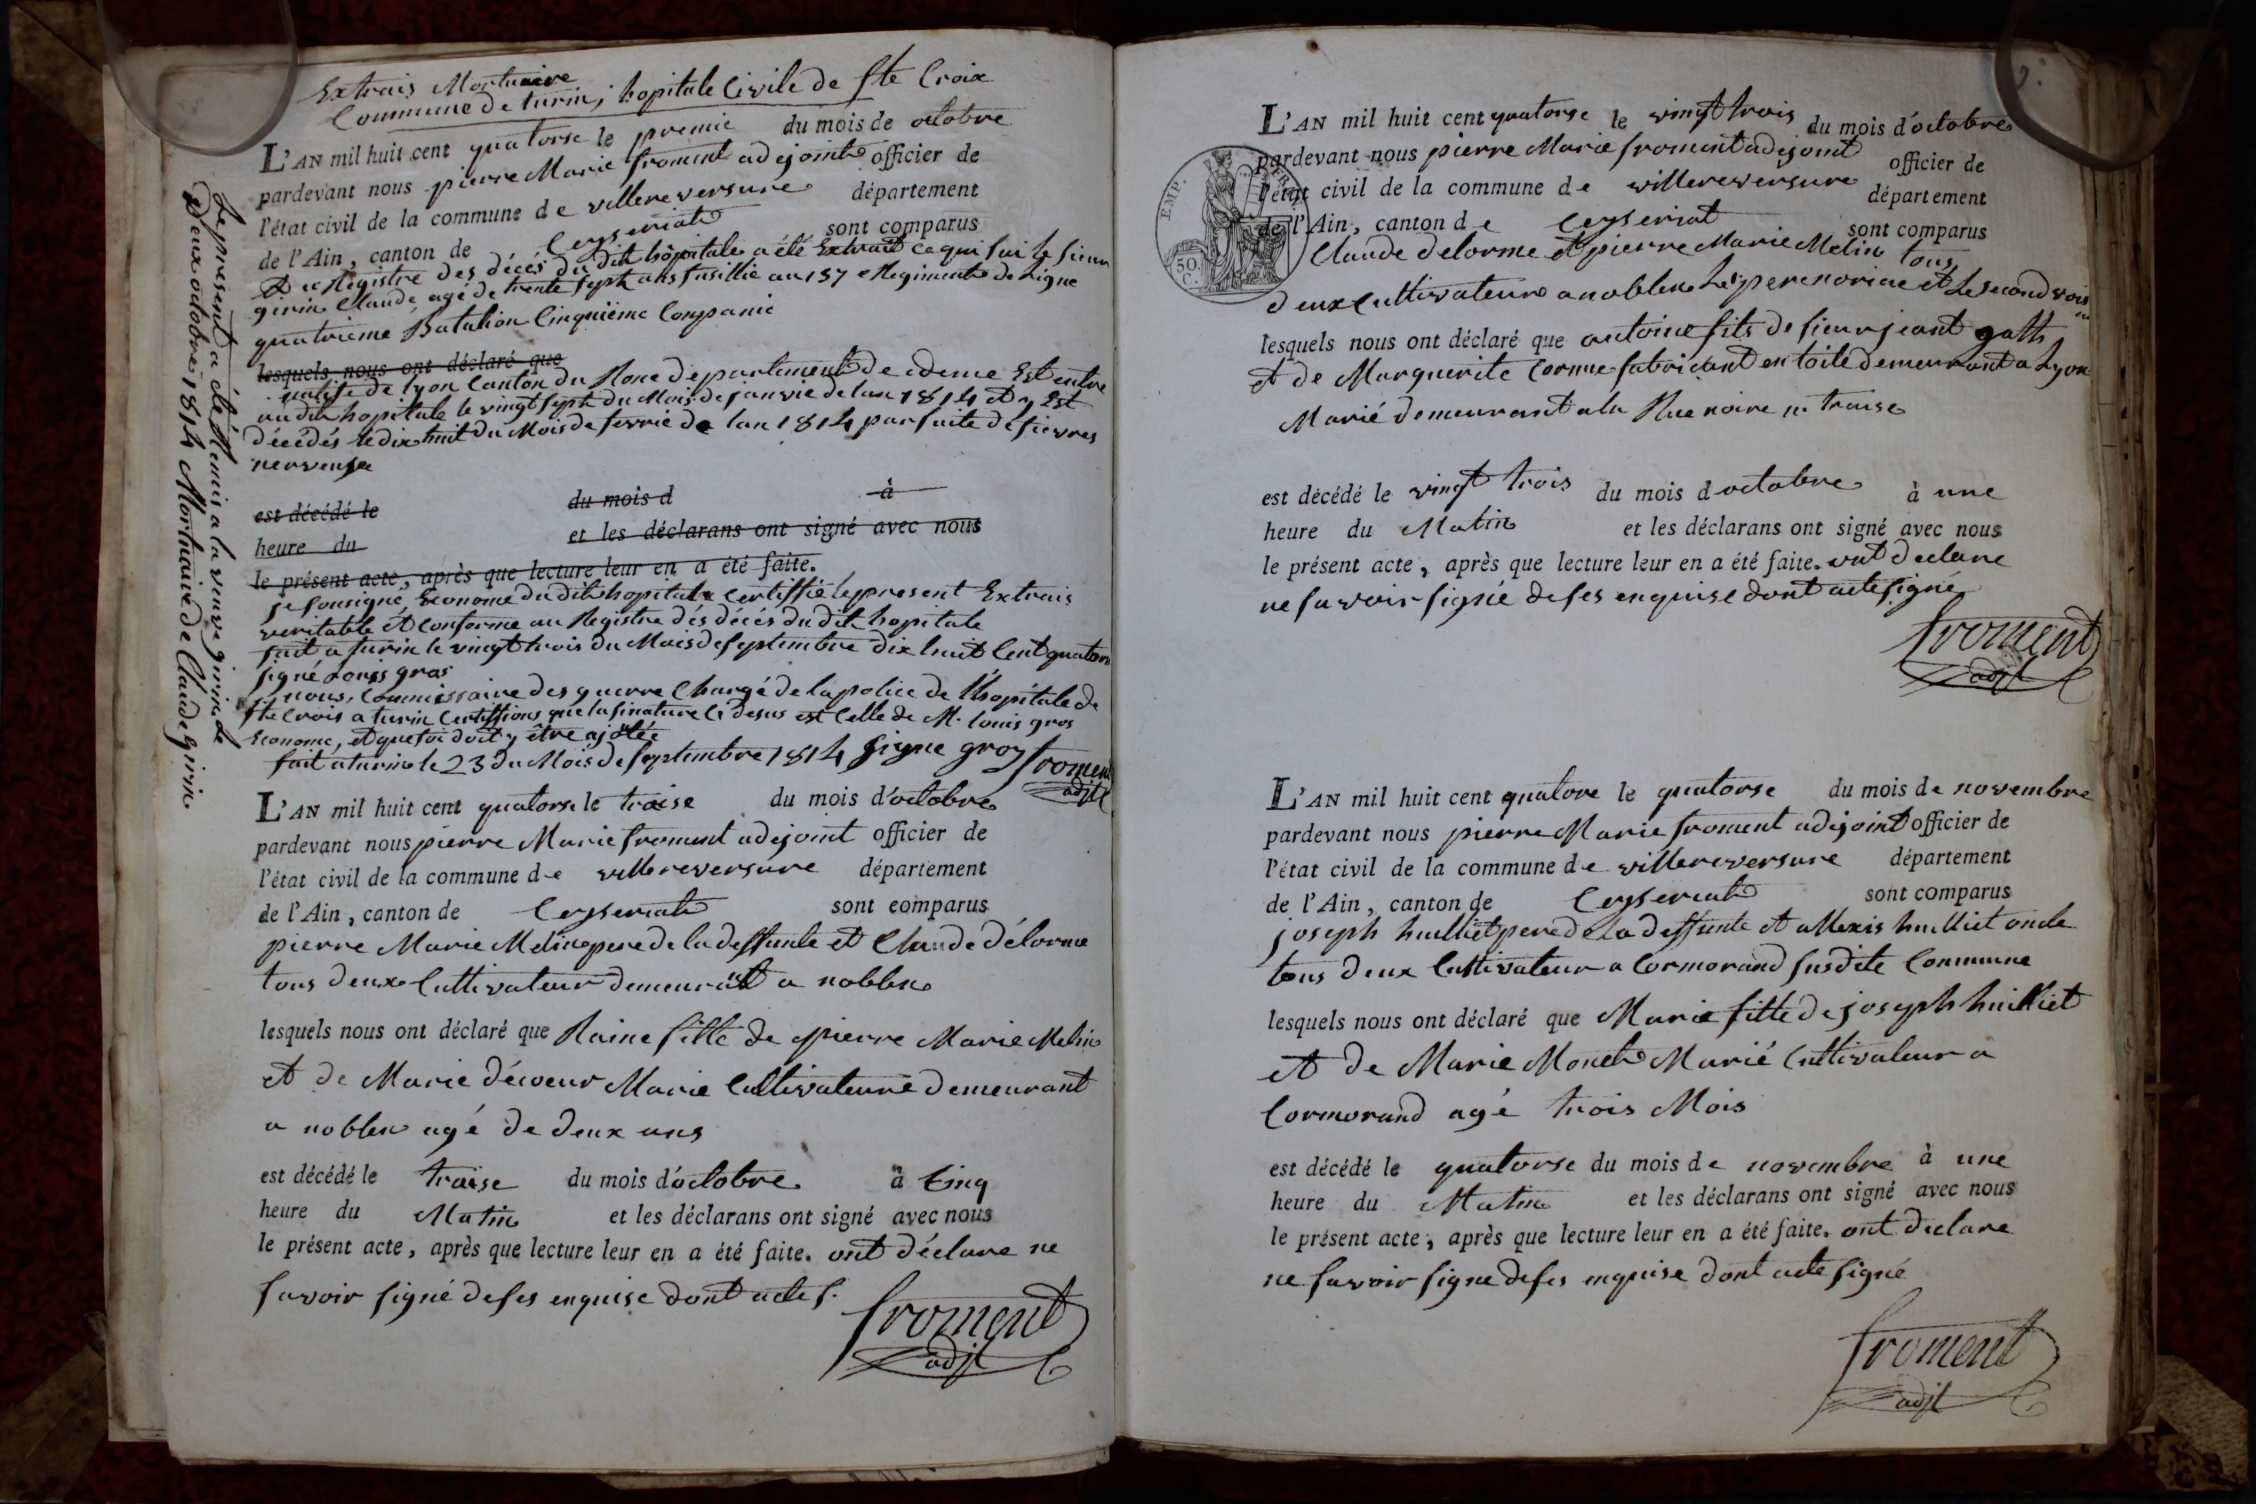 Extrais Mortuaire
Commune de turin, hopitale Civile de Ste Croix
L'AN mil huit cent quatorse le premie du mois de octobre
pardevant nous pierre Marie froment adejoint officier de
l'état civil de la commune de villereversure département
de l'Ain, canton de Ceyseriat sont comparus
Du Registre des décés du dit hôpitale a été Extrait ce qui suit le sieur
girin Claude, agé de trente sept ans fusillié au 137e Regiment de Ligne
quatrieme Batalion Cinquiéme Conpanie
lesquels nous ont déclaré que
natife de lyon Canton du Rone departement de ideme Est entre
au dit hopitale le vingt sept du Mois de janvié de lan 1814 et y Est
décédés le dix huit du Mois de fevrié de lan 1814 par suite de fievres
nerveuse
est décédé le du mois d à
heure du et les déclarans ont signé avec nous
le présent acte, après que lecture leur en a été faite.
je sousigné, Econome du dit hopitale Certiffie le present Extrais
veritable et Conforme au Registre dés décés du dit hopitale
fait a turin le vingt trois du Mois de septembre dix huit Cent quators
signé Louis gros
nous, Commissaire des guerre Chargé de la police de l'hopitale de
Ste Croix a turin Certiffions que la sinature Ci desus est Celle de M. louis gros
Econome, et que foi doit y être ajoutée
fait a turin le 23 du Mois de septembre 1814 signe gros froment
adjt
Le present a été Remis a la veuve girin le
Deux octobre 1814 Mortuaire de Claude girin
L'AN mil huit cent quatorse le traise du mois d'octobre
pardevant nous pierre Marie froment adejoint officier de
l'état civil de la commune de villereversure département
de l'Ain, canton de Ceyseriat sont comparus
pierre Marie Melin pere de la deffunte et Claude délorme
tous deux Cultivateur demeurat a noblen
lesquels nous ont déclaré que Raine fille de pierre Marie Melin
et de Marie décoeur Marie Cultivateure demeurant
a noblen agé de deux ans
est décédé le traise du mois d'octobre à Cinq
heure du Matin et les déclarans ont signé avec nous
le présent acte, après que lecture leur en a été faite. ont déclare ne
savoir signé de ses enquise dont acte s.
froment
adjt
L'AN mil huit cent quatorse le vingt trois du mois d'octobre
pardevant nous pierre Marie froment adejoint officier de
l'état civil de la commune de villereversure département
de l'Ain, canton de Ceyseriat sont comparus
EMP.
50
C.
Claude delorme et pierre Marie Melin tous
deux Cultivateur a noblen Le pere et Le second voisin
lesquels nous ont déclaré que antoine fils de sieur jeant gath
et de Marguerite Cornue fabricant en toile demeurant a Lyon
Marié demeurant a la Rue noire n. traise
est décédé le vingt trois du mois doctobre à une
heure du Matin et les déclarans ont signé avec nous
le présent acte, après que lecture leur en a été faite. ont declare
ne savoir signé de ses enquise dont acte signé
froment
adjt
L'AN mil huit cent quatore le quatorse du mois de novembre
pardevant nous pierre Marie froment adejoint officier de
l'état civil de la commune de villereversure département
de l'Ain, canton de Ceyseriat sont comparus
joseph huilliet pere de la deffunte et allexis huilliet oncle
tous deux Cultivateur a Cormorand susdite Commune
lesquels nous ont déclaré que Marie fille de joseph huilliet
et de Marie Monet Marié Cultivateur a
Cormorand agé trois Mois
est décédé le quatorse du mois de novembre à une
heure du Matin et les déclarans ont signé avec nous
le présent acte, après que lecture leur en a été faite. ont declare
ne savoir signe de ses enquise dont acte signé
froment
adjt